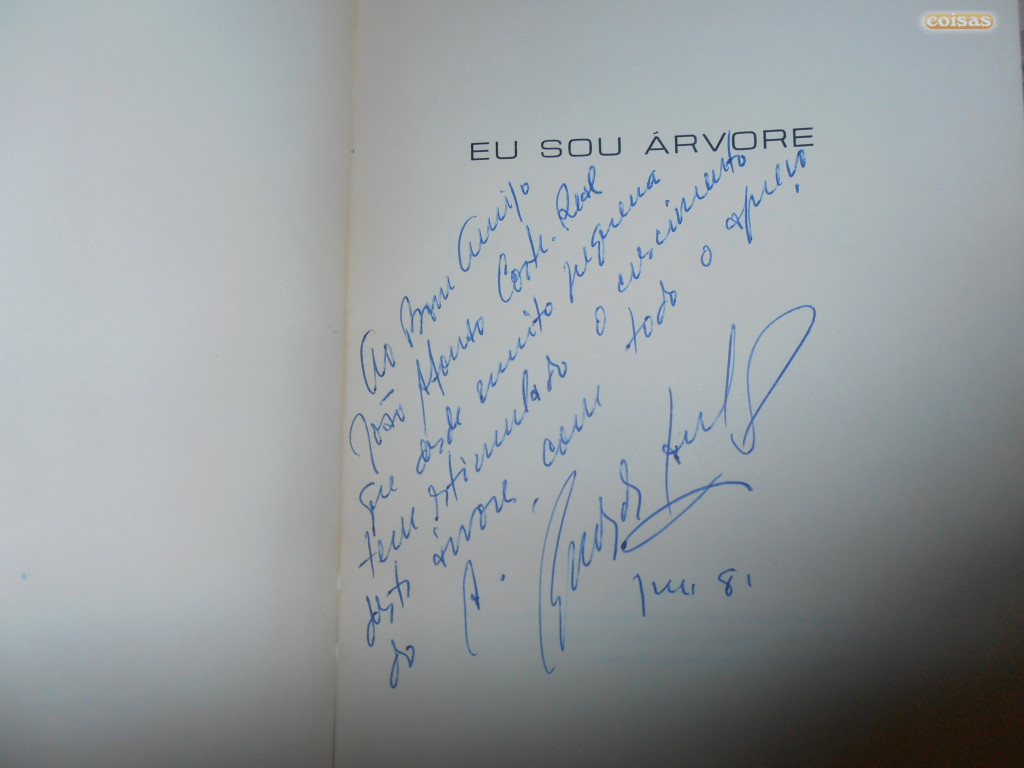 coisas
EU SOU ÁRVORE
Ao Bom Amigo
João Afonso Corte-Real
que desde muito pequena
tem estimulado o crescimento
desta árvore, com todo o apreço
do A.
81